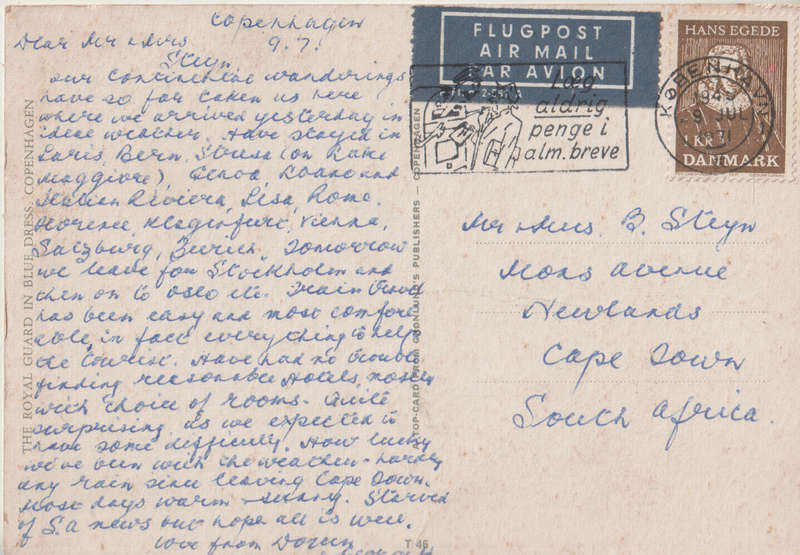 Copenhagen
9.7.
Dear Mr & Mrs
Steyn
Our continental wanderings
have so far taken us here
where we arrived yesterday in
ideal weather. Have stayed in
Paris, Bern, Stresa (on Lake
Maggiore), Genoa Loano and
Italian Riviera, Pisa, Rome.
Florence, Klagenfurt, Vienna,
Salzburg, Zurich. Tomorrow
we leave for Stockholm and
then on to Oslo etc. Train travel
has been easy and most comfort
able, in fact everything to help
the tourist. Have had no trouble
finding reasonable Hotels, mostly
with choice of rooms. Quite
surprising as we expected to
have some difficulty. How lucky
we've been with the weather - hardly
any rain since leaving Cape Town.
Most days warm & sunny. Starved
of S.A news but hope all is well.
Love from Doreen
THE ROYAL GUARD IN BLUE DRESS, COPENHAGEN
A TOP-CARD FROM GRØNLUND'S PUBLISHERS — COPENHAGEN
T 46
FLUGPOST
AIR MAIL
PAR AVION
Læg
aldrig
penge i
alm. breve
KØBENHAVN
9. JUL
1971
HANS EGEDE
1 KR
DANMARK
Mr & Mrs. B. Steyn
Mons Avenue
Newlands
Cape Town
South Africa.